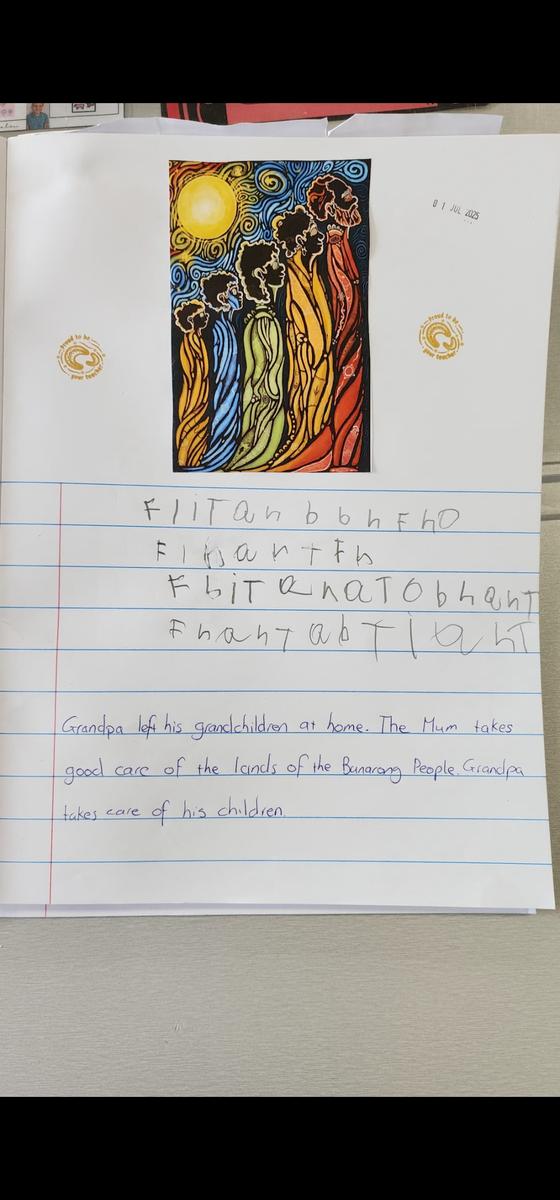 01 JUL 2025
Proud to be
your teacher
Proud to be
your teacher
F l i T a n b b n F h O
F i n a n T F h
F h i T a n a T O b h a n T
F n a n T a b T i a n T
Grandpa left his grandchildren at home. The Mum takes
good care of the lands of the Bunarong People. Grandpa
takes care of his children.